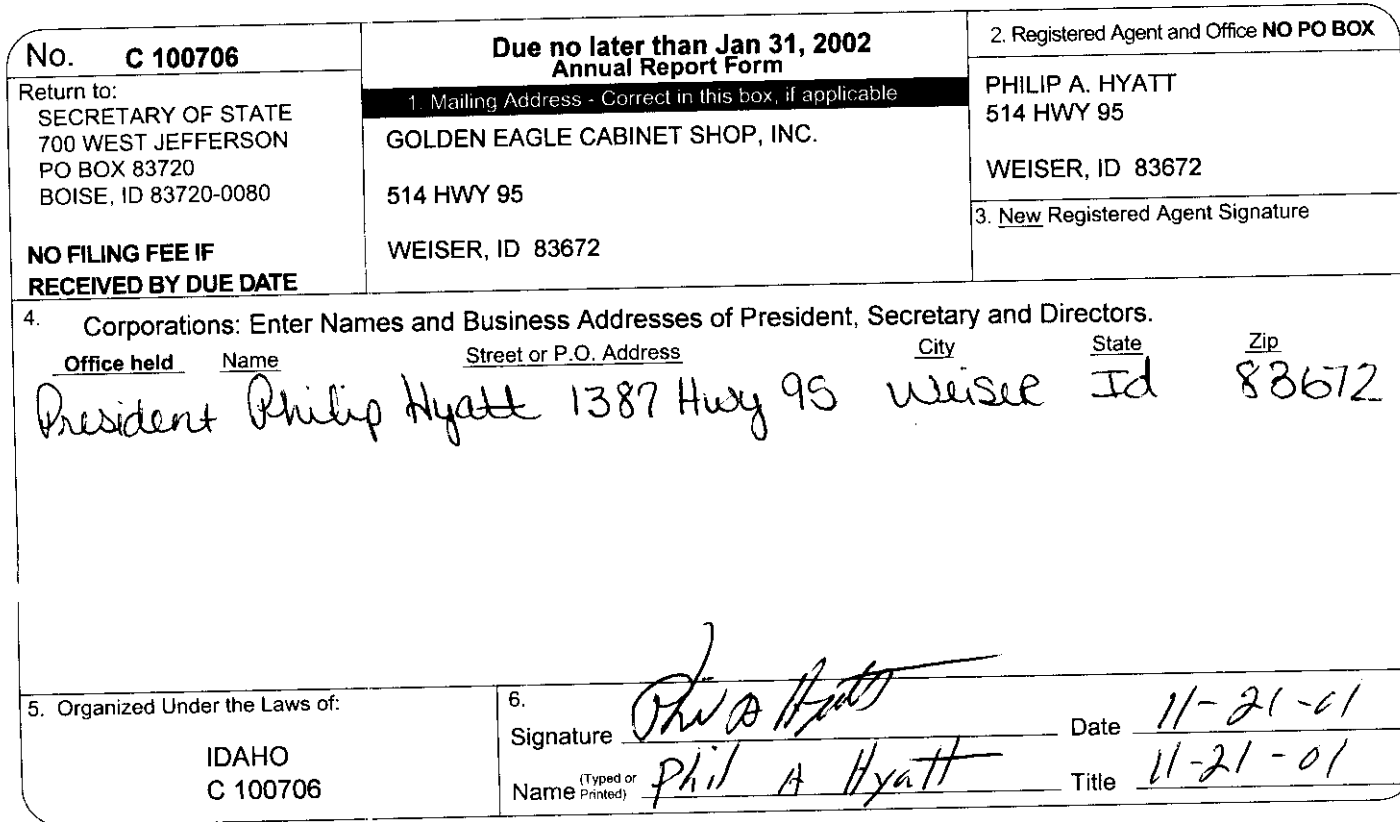 No. C 100706
Return to:
SECRETARY OF STATE
700 WEST JEFFERSON
PO BOX 83720
BOISE, ID 83720-0080
NO FILING FEE IF
RECEIVED BY DUE DATE
Due no later than Jan 31, 2002
Annual Report Form
1. Mailing Address - Correct in this box, if applicable
GOLDEN EAGLE CABINET SHOP, INC.
514 HWY 95
WEISER, ID 83672
2. Registered Agent and Office NO PO BOX
PHILIP A. HYATT
514 HWY 95
WEISER, ID 83672
3. New Registered Agent Signature
4. Corporations: Enter Names and Business Addresses of President, Secretary and Directors.
Office held Name Street or P.O. Address City State Zip
President Philip Hyatt 1387 Hwy 95 Weiser Id 83672
5. Organized Under the Laws of:
IDAHO
C 100706
6.
Signature Phil A Hyatt Date 11-21-01
Name (Typed or Printed) Phil A Hyatt Title 11-21-01